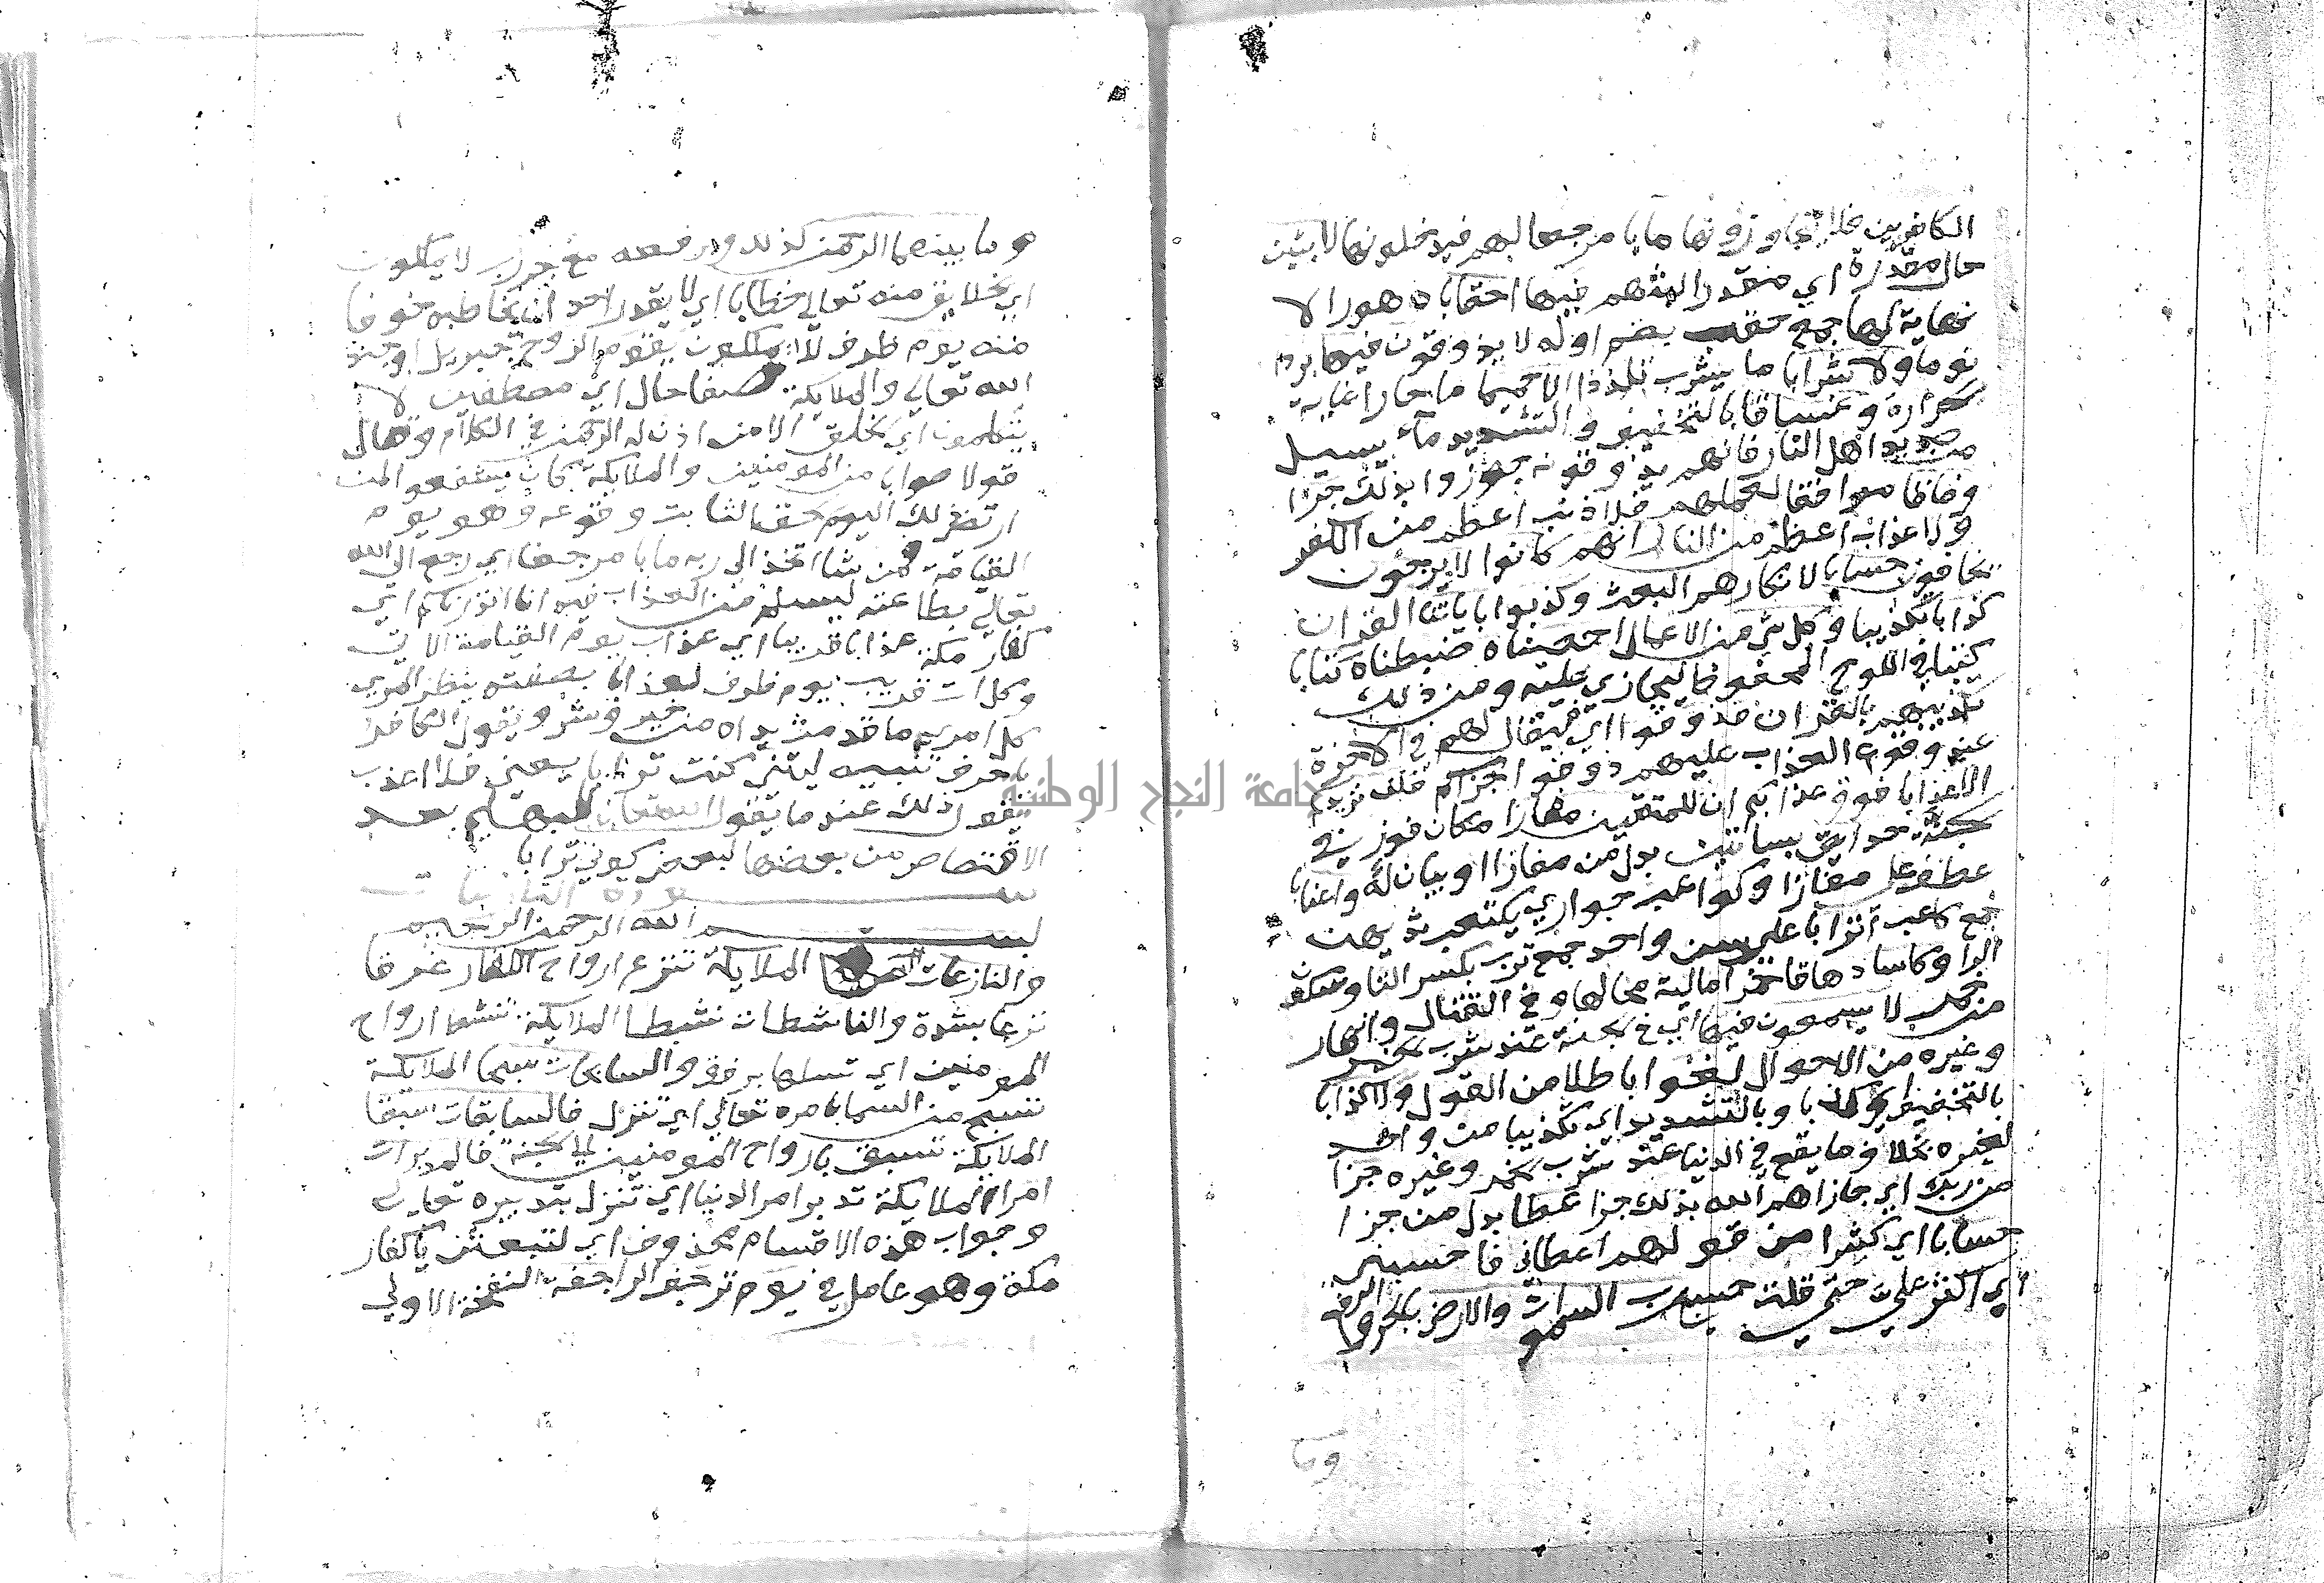 الكافرين فلا يتجاوزونها مابا مرجعا لهم فيدخلونها لابثين
حال مقدرة اي مقدرا لبثهم فيها احقابا دهورا لا
نهاية لها جمع حقب بضم اوله لا يذوقون فيها بردا
نوما ولا شرابا ما يشرب تلذذا الا حميما ما حارا غاية
الحرارة وغساقا بالتخفيف والتشديد ما يسيل
من صديد اهل النار فانهم يذوقونه جوزوا بذلك جزا
وفاقا موافقا لعملهم فلا ذنب اعظم من الكفر
ولا عذاب اعظم من النار انهم كانوا لا يرجون
يخافون حسابا لانكارهم البعث وكذبوا باياتنا القران
كذابا تكذيبا وكل شي من الاعمال احصيناه ضبطناه كتابا
كتبا في اللوح المحفوظ ليجازي عليه ومن ذلك
تكذيبهم بالقران فذوقوا اي فيقال لهم في الاخرة
عند وقوع العذاب عليهم ذوقوا جزاكم فلن نزيدكم
الا عذابا فوق عذابكم ان للمتقين مفازا مكان فوز في
الجنة حدايق بساتين بدل من مفازا او بيان له واعنابا
عطف على مفازا وكواعب جواري تكعبت ثديهن
جمع كاعب اترابا على سن واحد جمع ترب بكسر التا وسكون
الرا وكاسا دهاقا خمرا مالية محالها وفي القتال وانهار
من خمر لا يسمعون فيها اي في الجنة عند شرب الخمر
وغيره من الاحوال لغوا باطلا من القول ولا كذابا
بالتخفيف كذبا وبالتشديد اي تكذيبا من واحد
لغيره بخلاف ما يقع في الدنيا عند شرب الخمر وغيره جزا
من ربك اي جازاهم الله بذلك جزا عطا بدل من جزا
حسابا اي كثيرا من قولهم اعطاني فاحسبني
اي اكثر علي حتى قلت حسبي رب السموات والارض بالجر والرفع
وما
وما بينهما الرحمن كذلك وبرفعه مع جر رب لا يملكون
اي الخلايق منه تعالى خطابا اي لا يقدر احد ان يخاطبه خوفا
منه يوم ظرف للا يملكون يقوم الروح جبريل او جند
الله تعالى والملايكة صفا حال اي مصطفين لا
يتكلمون اي الخلق الا من اذن له الرحمن في الكلام وقال
قولا صوابا من المومنين والملايكة كان يشفعوا لمن
ارتضى ذلك اليوم الحق الثابت وقوعه وهو يوم
القيامة فمن شا اتخذ الى ربه مابا مرجعا اي رجع الى الله
تعالى بطاعته ليسلم من العذاب فيه انا انذرناكم اي
كفار مكة عذابا قريبا اي عذاب يوم القيامة الاتي
وكل ات قريب يوم ظرف لعذابا بصفته ينظر المرء
كل امرء ما قدمت يداه من خير وشر ويقول الكافر
يا حرف تنبيه ليتني كنت ترابا يعني فلا اعذب
يقول ذلك عند ما يقول الله تعالى للبهايم بعد
الاقتصاص من بعضها لبعض كوني ترابا
سورة النازعات
بسم الله الرحمن الرحيم
والنازعات الملايكة تنزع ارواح الكفار غرقا
نزعا بشدة والناشطات نشطا الملايكة تنشط ارواح
المومنين اي تسلها برفق والسابحات سبحا الملايكة
تسبح من السما بامره تعالى اي تنزل فالسابقات سبقا
الملايكة تسبق بارواح المومنين الى الجنة فالمدبرات
امرا الملايكة تدبر امر الدنيا اي تنزل بتدبيره تعالى
وجواب هذه الاقسام محذوف اي لتبعثن يا كفار
مكة وهو عامل في يوم ترجف الراجفة النفخة الاولى
جامعة النجاح الوطنية